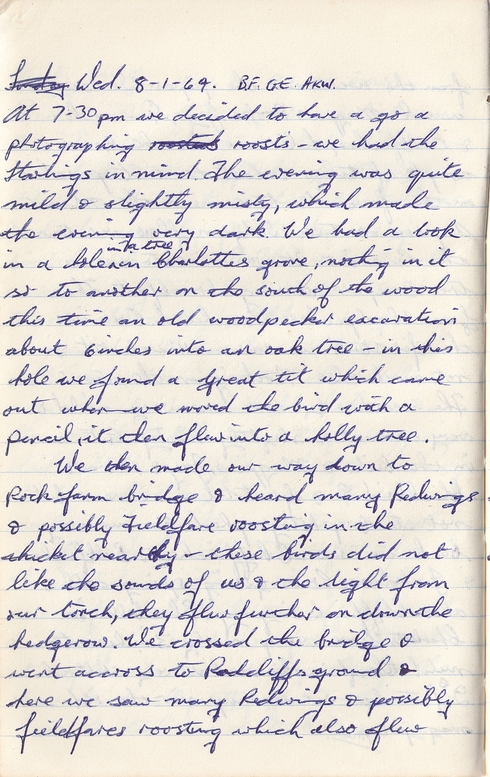 Wed. 8-1-64. B.F. G.E. A.K.W.
At 7-30pm we decided to have a go a
photographing roosts - we had the
Starlings in mind. The evening was quite
mild & slightly misty, which made
the evening very dark. We had a look
in a hole in a tree in Charlottes grove, nothing in it
so to another on the south of the wood
this time an old woodpecker excavation
about 6 inches into an oak tree - in this
hole we found a Great tit which came
out when we moved the bird with a
pencil, it then flew into a holly tree.
We then made our way down to
Rock farm bridge & heard many Redwings
& possibly Fieldfare roosting in the
thicket nearby - these birds did not
like the sounds of us & the light from
our torch, they flew further on down the
hedgerow. We crossed the bridge &
went accross to Radcliffs ground &
here we saw many Redwings & possibly
fieldfares roosting which also flew